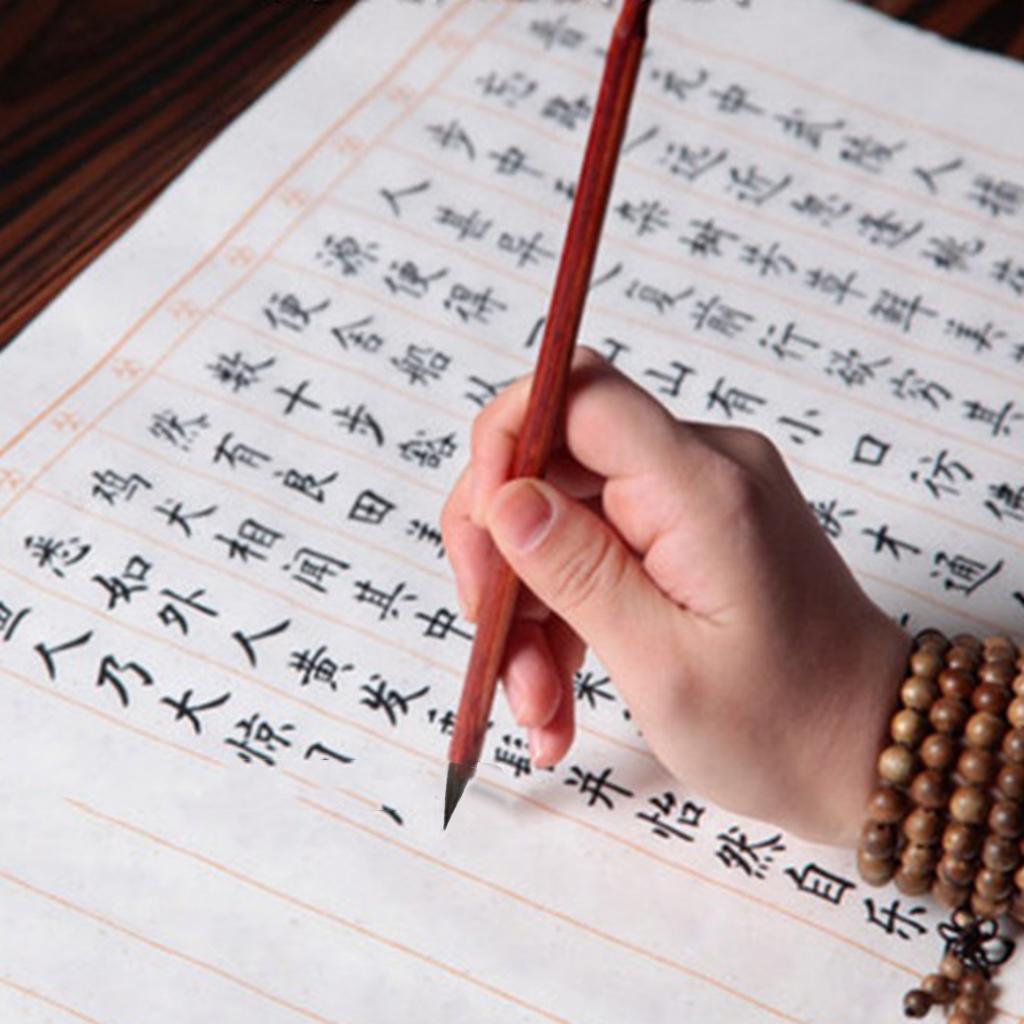 晋元中武陵人捕
忘路远近忽逢桃花
步中无杂树芳草鲜美
人甚异复前行欲穷其
源便得一山山有小口仿佛
便舍船从狭才通
数十步豁
然有良田美
鸡犬相闻其中来
悉如外人黄发髫并怡然自乐
人乃大惊